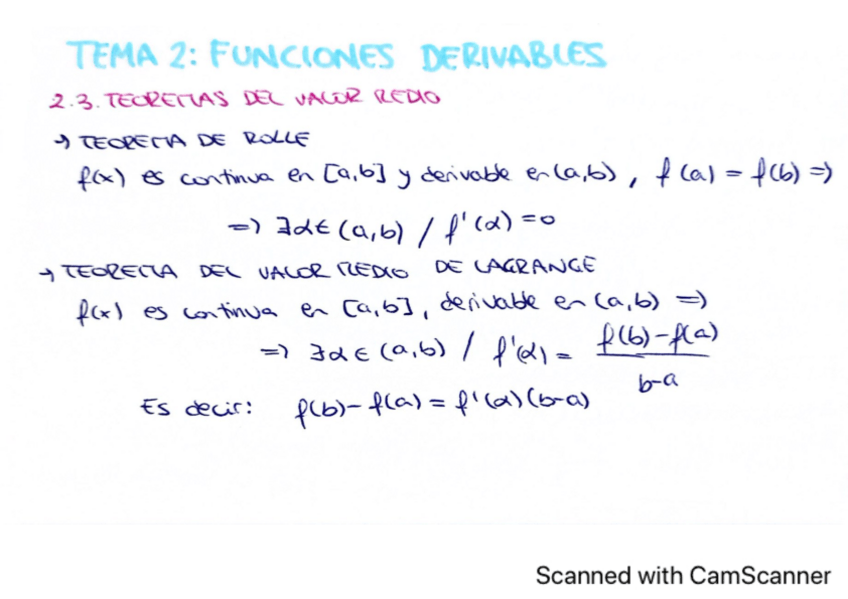 TEMA 2: FUNCIONES DERIVABLES
2.3. TEOREMAS DEL VALOR MEDIO
→ TEOREMA DE ROLLE
f(x) es continua en [a,b] y derivable en (a,b), f(a) = f(b) =>
=> ∃α∈(a,b) / f'(α)=0
→ TEOREMA DEL VALOR MEDIO DE LAGRANGE
f(x) es continua en [a,b], derivable en (a,b) =>
=> ∃α∈(a,b) / f'(α) = f(b)-f(a)
b-a
Es decir: f(b)-f(a) = f'(α)(b-a)
Scanned with CamScanner